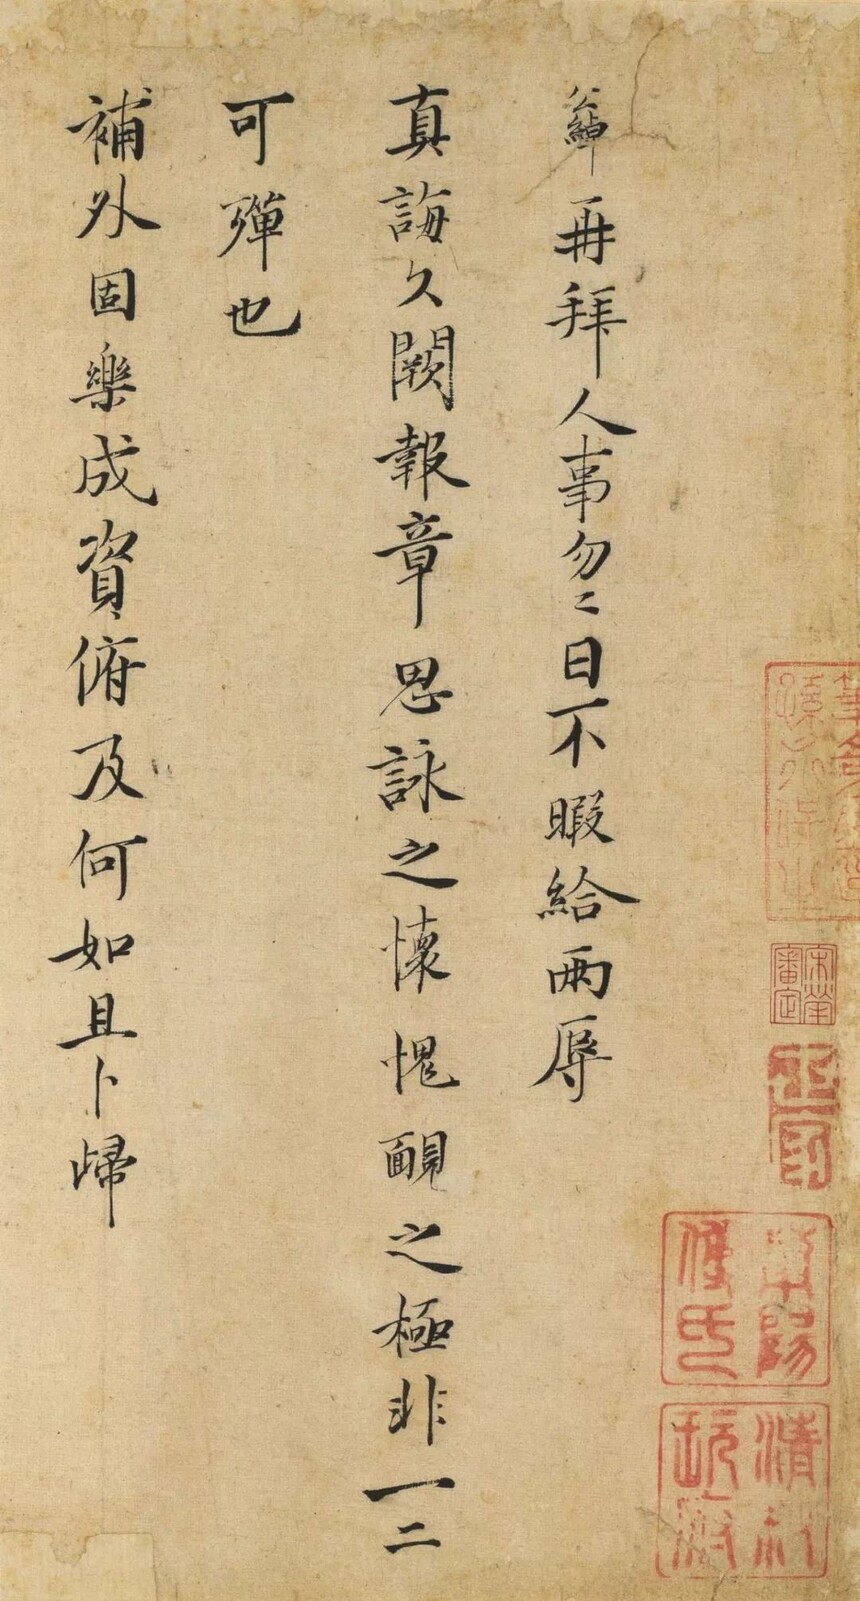 再拜人事勿々日不暇給兩辱
真誨久闕報章思詠之懷愧靦之極非一二
可殫也
補外固樂成資俯及何如且卜歸